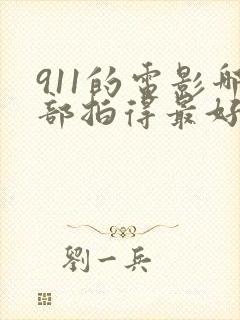 911的电影哪
部拍得最好
劉一兵